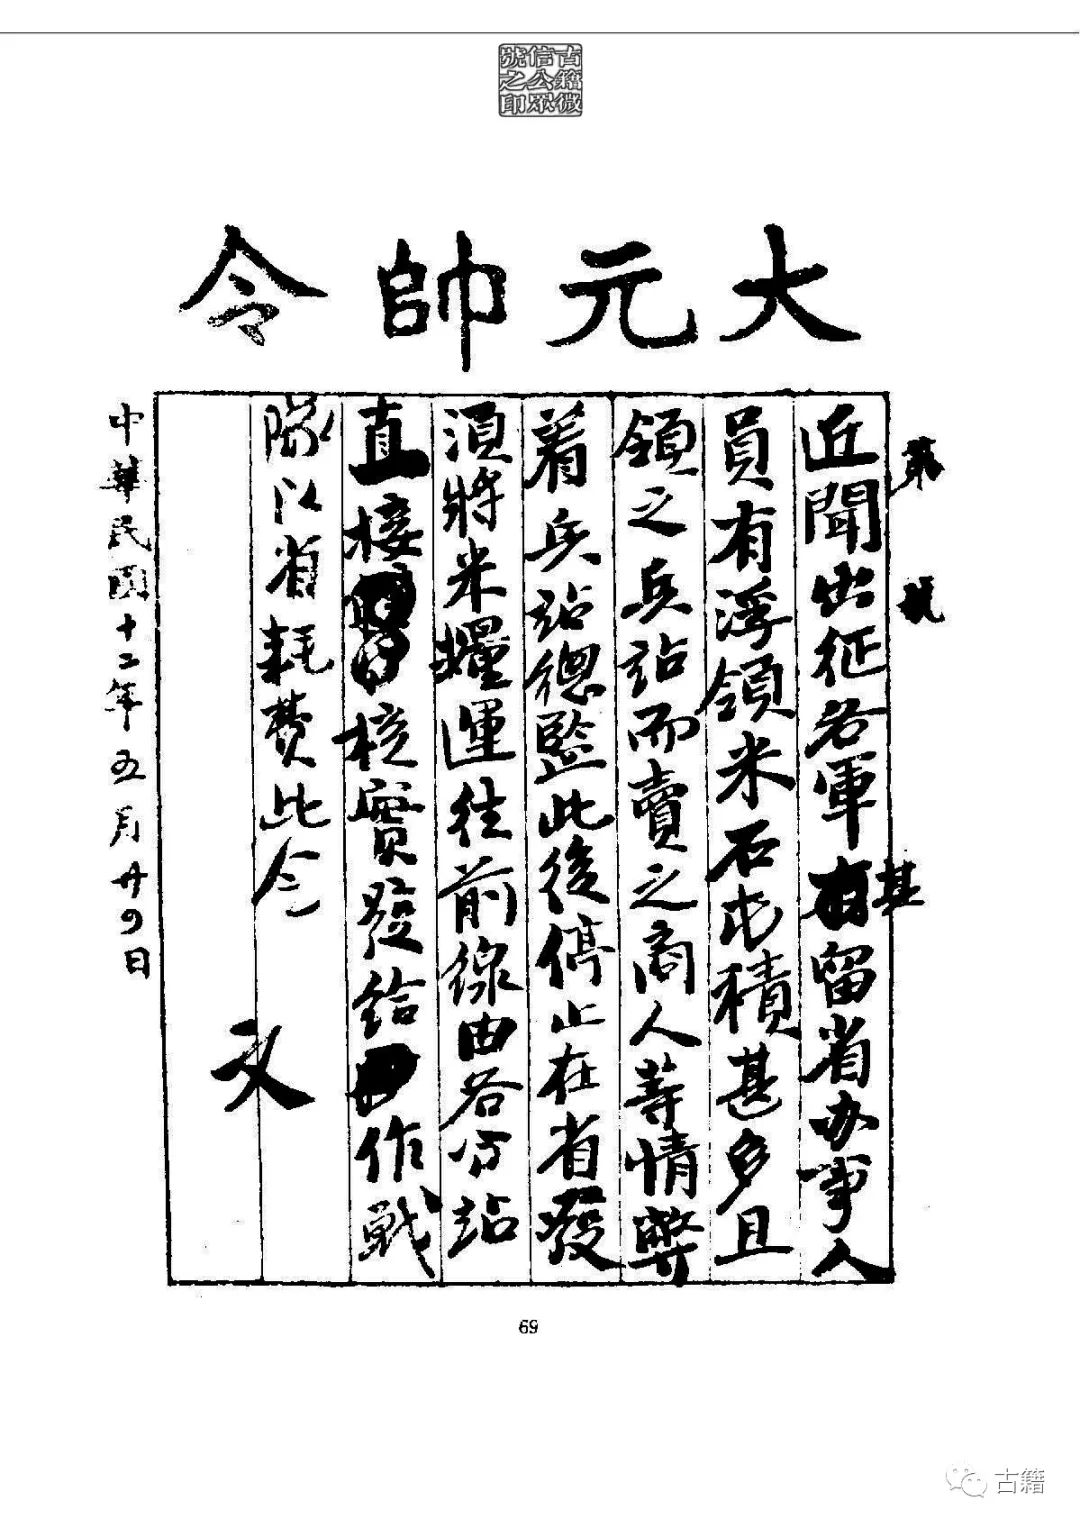 古籍微
信公眾
號之印
大元帥令
第 號
近聞出征各軍其留省办事人
員有浮領米石屯積甚多且
領之兵站而賣之商人等情弊
着兵站總監此後停止在省發
須將米糧運往前線由各分站
直接核實發給作戰
隊以省耗費此令
文
中華民國十二年五月廿四日
69
古籍